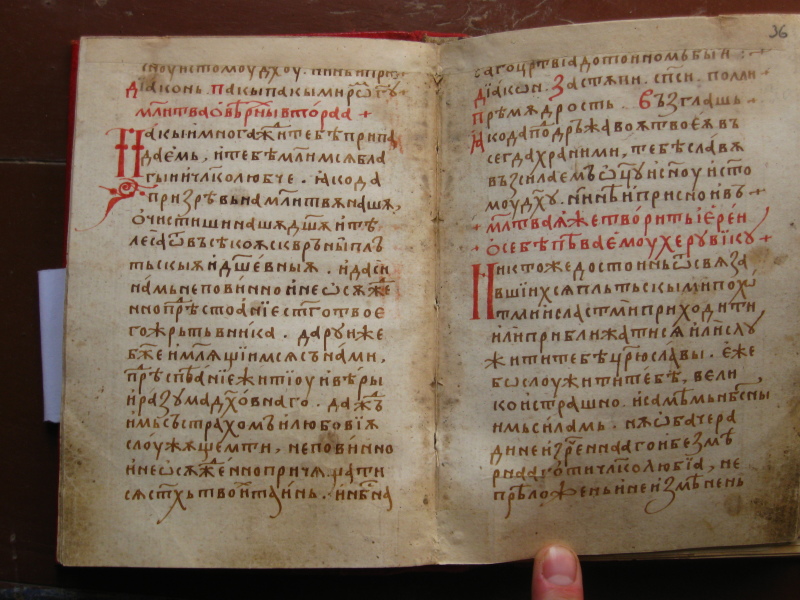 діаконь. пакы пакы миромь гоу
млитва ѡ вѣрны втораа +
Пакы и многажⷣи тебѣ припа
даемь, и тебѣ млим сѧ бла
гыи и чл҃колюбче. ꙗко да
призрѣвь на млитвѧ нашѧ,
очистиши нашѧ дш҃ѧ и тѣ
леса ѿ въсѣкоѧ сквръны плъ
тьскыѧ и дш҃евныѧ. и даси
намь неповинно и неѡсѧжⷣе
нно прѣⷣстоаніе ст҃го твое
го жрътьвника. даруи же
бж҃е и молѧщїимсѧ съ нами,
прѣспѣаніе житїоу и вѣры
и разума дх҃овнаго. даждь
имь съ страхомь и любовїѧ
слоужѧщем ти, неповинно
и неѡсѧжⷣенно причѧщати
сѧ ст҃хь твоихь таинь. и нб҃на
36
аго цр҃твїа достоиномь быти
дїакон. Застѧпи. спс҃и. поми
Прѣмѧдрость. Възглашь
Ꙗко да подь дръжавоѧ твоеѧ въ
сегда храними, тебѣ славѧ
въз силаемь ѡц҃у и сн҃оу и ст҃о
моу дх҃у. нн҃ѣ и присно и въ +
+ млт҃ва ꙗже творить іерей
+ о себѣ пѣваемоу херувику +
Никтоже достоинь ѿ свѧза
вшїихсѧ плътьскыми похо
тми и сластми приходити
или приближатисѧ или слу
жити тебѣ цр҃ю славы. еже
бо слоужити тебѣ, вели
ко и страшно. и самѣмь нбс҃ны
имь силамь. нѧ ѡбаче ра
ди неизреченнааго и безмѣ
рнааго ти чл҃колюбїа, не
прѣложень и неизмѣнень